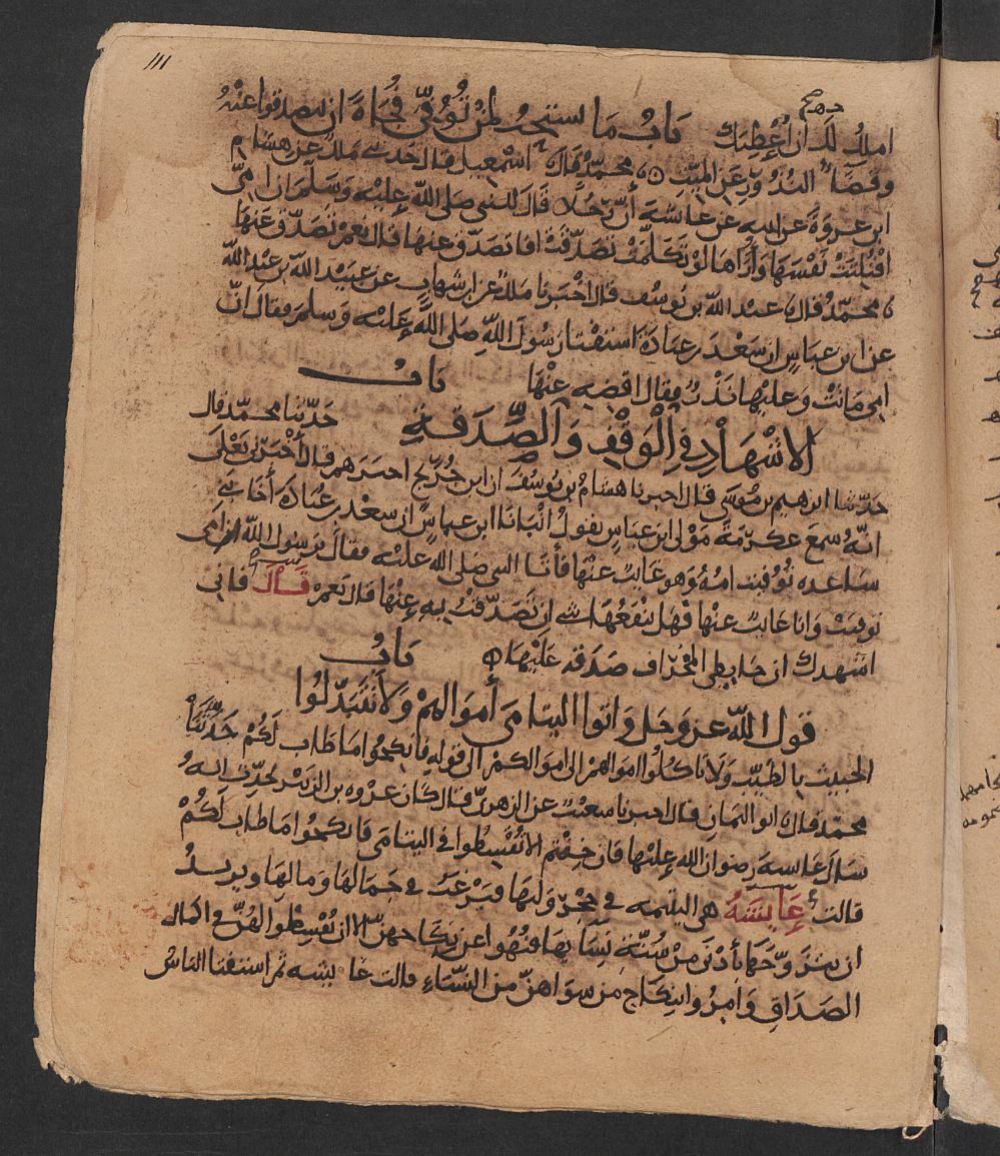 111
املك لك ان أعطيك باب ما يستحب لمن توفي فجاة ان يتصدقوا عنه
وقضا النذور عن الميت محمد قال اسمعيل قال حدثني ملك عن هشام
ابن عروة عن ابيه عن عائشة أن رجلا قال للنبي صلى الله عليه وسلم ان امي
افتلتت نفسها وأراها لو تكلمت تصدقت افاتصدق عنها قال نعم تصدق عنها
محمد قال عبد الله بن يوسف قال اخبرنا ملك عن ابن شهاب عن عبيد الله بن عبد الله
عن ابن عباس ان سعد بن عبادة استفتا رسول الله صلى الله عليه وسلم فقال ان
امي ماتت وعليها نذر فقال اقضه عنها باب
الاشهاد في الوقف والصدقة حدثنا محمد قال
حدثنا ابرهيم بن موسى قال اخبرنا هشام بن يوسف ان ابن جريج اخبرهم قال أخبرني يعلى
انه سمع عكرمة مولى ابن عباس يقول انبانا ابن عباس ان سعد بن عبادة أخا بني
ساعده توفيت امه وهو غايب عنها فأتا النبي صلى الله عليه فقال يرسول الله ان امي
توفيت وانا غايب عنها فهل ينفعها شي ان تصدقت به عنها قال نعم قال فاني
اشهدك ان حايطي المخراف صدقه عليها باب
قول الله عز وجل واتوا اليتامى أموالهم ولا تتبدلوا
الخبيث بالطيب ولا تاكلوا اموالهم الى اموالكم الى قوله فانكحوا ما طاب لكم حدثنا
محمد قال ابو اليمان قال اخبرنا شعيب عن الزهري قال كان عروه بن الزبير يحدث انه
سال عايشه رضوان الله عليها فان خفتم الا تقسطوا في اليتامى فانكحوا ما طاب لكم
قالت عايشة هي اليتيمه في حجر وليها فيرغب في جمالها ومالها ويريد
ان يتزوجها بأدنى من سنة نسايها فنهوا عن نكاحهن الا ان تقسطوا لهن في اكمال
الصداق وأمروا بنكاح من سواهن من النساء قالت عايشه ثم استفتا الناس